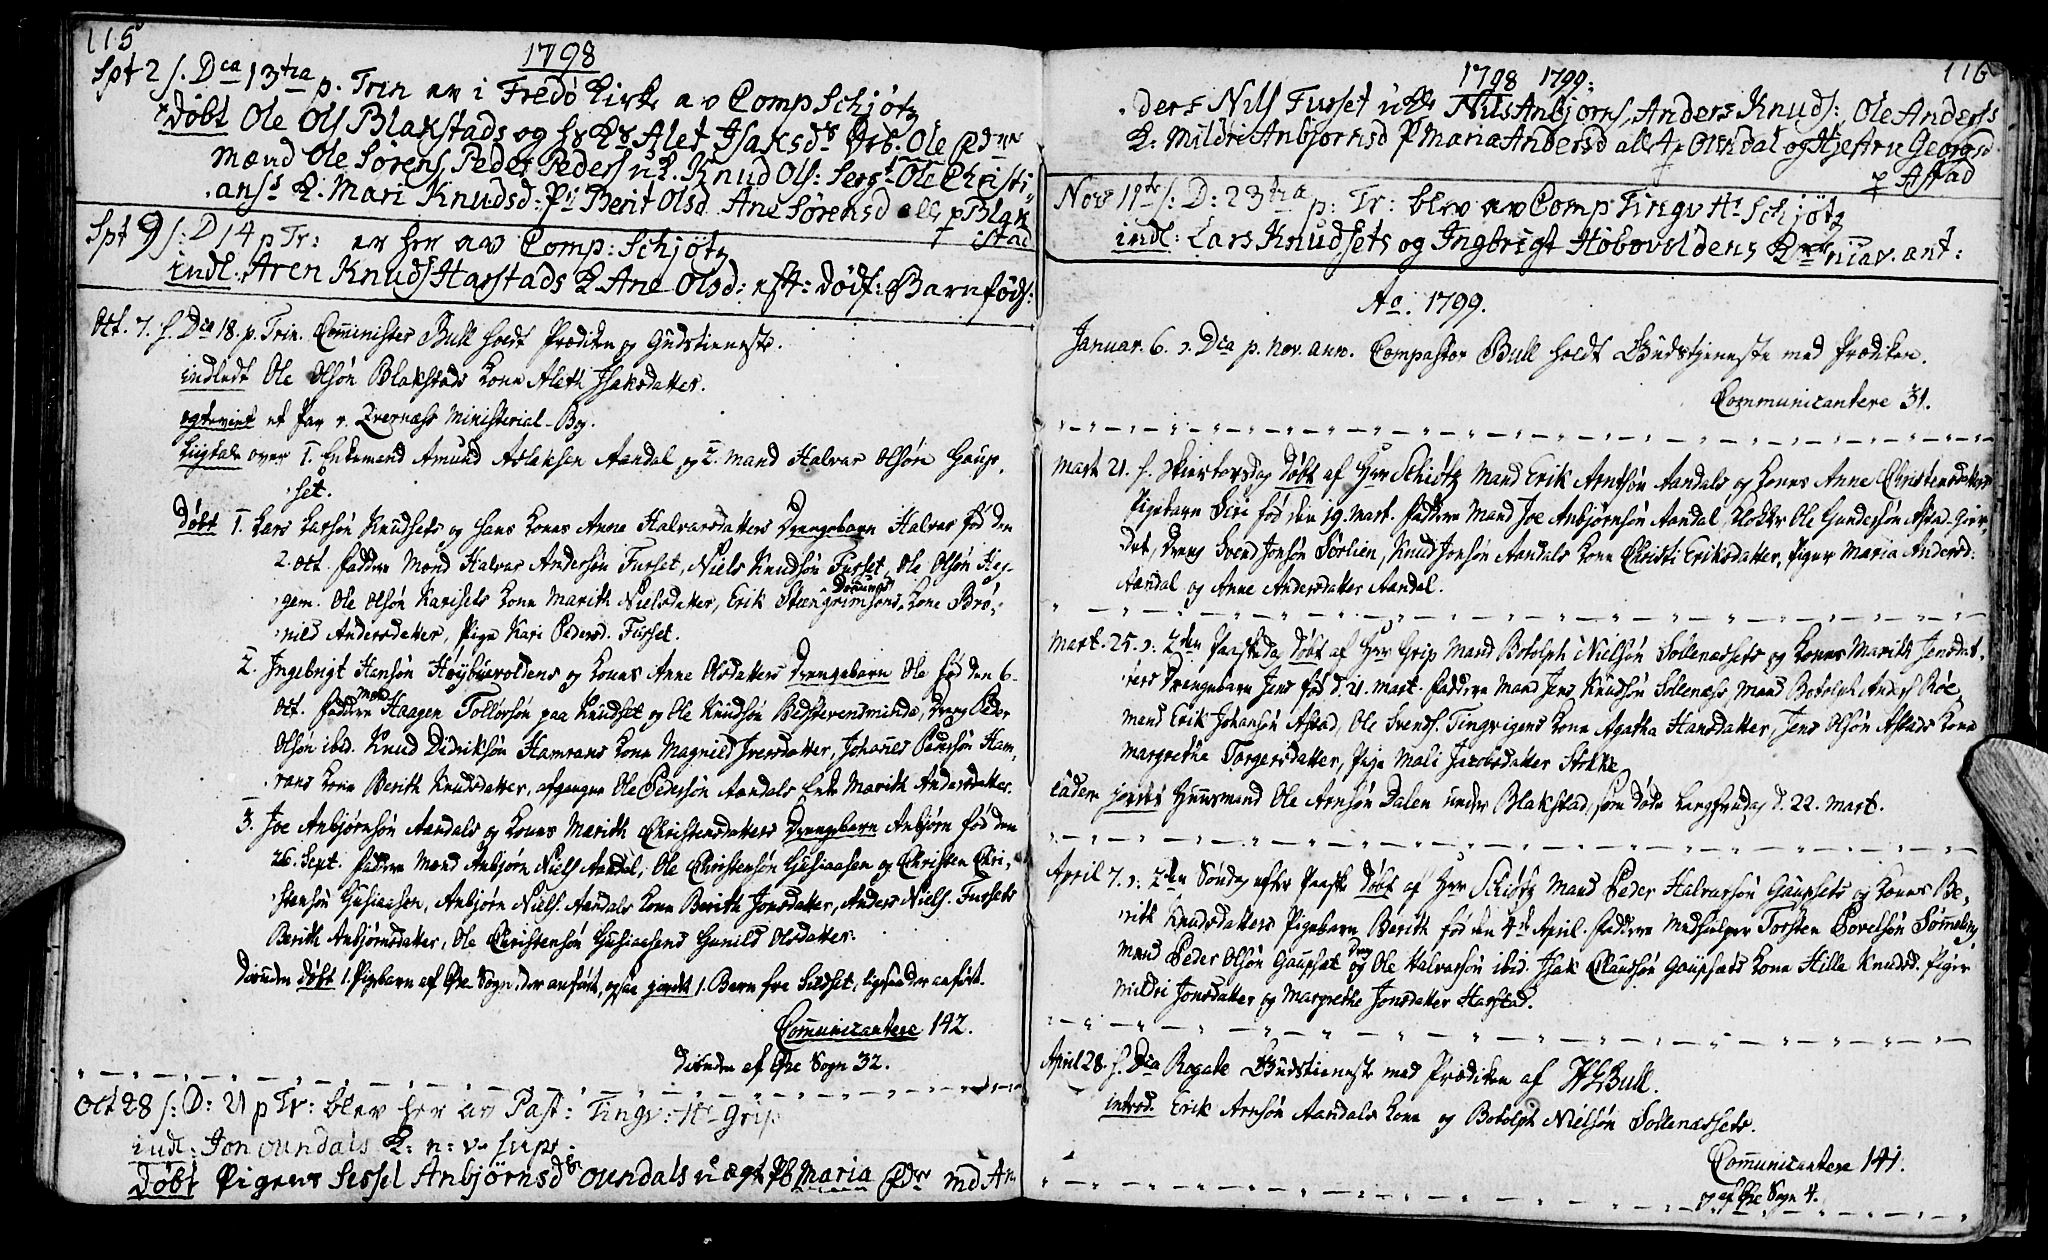 115
1798
Spt 2 s. Dca 13tia p. Trin er i Fredö Kirke av Comp Schjötz
Döbt Ole Ols Blakstads og hs Ks Alet Isaksds Drb. Ole
mænd Ole Sörens, Peder Peders K. Knud Ols: Serst Ole Christi
ans K. Mari Knudsd: Pi Berit Olsd Ane Sörensd alle p Blak
istad
Spt 9 s: D 14 p Tr: er her av Comp: Schjötz
indl. Aren Knuds Harstads K Ane Olsd: eft: dödf: Barnföds:
Oct. 7. s. Dca 18. p. Trin. Comminister Bull holdt Prædiken og Gudstieneste.
indledt Ole Olsön Blakstads Kone Aleth Isaksdatter.
egteviet et Par v. Qvernæss Ministerial-Bog.
Liigtale over 1. Enkemand Amund Aslaksen Aandal og 2. Mand Halvar Olsön Gaup,
set.
Döbt 1. Lars Larsön Knudsets og hans Kones Anne Halvarsdatters Drengebarn Halvar föd den
2. Oct. Faddere Mænd Halvar Andersön Furset, Niels Knudsön Furset, Ole Olsön Heg,
gem. Ole Olsön Karisets Kone Marith Nielsdatter, Erik Steengrimsöns Kone Brö,
nild Andersdatter, Pige Kari Pedersd. Furset.
2. Ingebrigt Hansön Höybuevoldens og Kones Anne Olsdatters Drengebarn Ole föd den 6.
Oct. Faddere Mænd Haagen Tollorsön paa Knudset og Ole Knudsön Bedstevensminde, Dreng Peder
Olsön ibid. Knud Didriksön Hamrans Kone Magnild Iversdatter, Johanes Pedersön Ham,
rans Kone Berith Knudsdatter, afgangne Ole Pedersön Aandals Enke Marith Andersdatter.
3. Joe Anbjörnsön Aandals og Kones Marith Christensdatters Drengebarn Anbjörn föd den
26. Sept. Faddere Mænd Anbjörn Niels. Aandal, Ole Christensön Gusiaasen og Christen Chri,
stensön Gusiaasen, Anbjörn Niels. Aandals Kone Berith Jonsdatter, Anders Niels. Fursets
Berith Anbjörnsdatter, Ole Christensön Gusiaasens Gunild Olsdatter.
Desuden döbt 1. Pigebarn af Öre Sogn, der anfört, ogsaa jordet 1. Barn fra Sildset, ligesaa der anfört.
Communicantere 142.
desuden af Öre Sogn 32.
Oct 28 s: D: 21 p Tr: blev her av Past: Tingv: Hr Grip
indl: Jon oundals K: n: v. supr
Döbt Pigens Sessel Anbjörnsds oundals uægt Pb Maria Fdr md An
1798 1799:
116
ders Nils Furset Nils Anbjörns, Anders Knuds: Ole Anders
K. Mildri Anbjornsd P Maria Andersd alle p Olendal og Georgsd
p Astad
Nov 11te s: D: 23tia p: Tr: blev av Comp Tingv Hr Schjötz
indl: Lars Knudsets og Ingbrigt Höbovoldens
Ao. 1799.
Januar. 6. D. Dca p. nov. ann. Compastor Bull holdt Gudstjeneste med Prædiken.
Communicantere 31.
Mart 21. s. Skiertorsdag döbt af Herr Schiötz Mand Erik Arntsön Aandals og Kones Anne Christensdatters
Pigebarn Siri föd den 19. Mart. Faddere Mand Joe Anbjörnsön Aandal, Klokker Ole Gundersön Astad
Dreng Svend Jonsön Sörlien, Knud Jonsön Aandals Kone Christi Eriksdatter, Piger Maria Andersd:
Aandal og Anne Andersdatter Aandal.
Mart. 25. D. 2den Paaskedag döbt af Herr Grip Mand Botolph Nielsön Sollenæssets og Kones Marith Jensdat,
ters Drengebarn Jens föd d. 21. Mart. Faddere Mand Jens Knudsön Sollenæss, Mand Botolph Anders. Röe,
Mand Erik Johansön Astad, Ole Svends. Tingvigens Kone Agatha Hansdatter, Jens Olsön Astads Kone
Margrethe Torgersdatter, Pige Mali Jacobsdatter Stokke.
eadem jordet Huusmand Ole Arnsön Dalen under Blakstad, som döde Langfredag d. 22. Mart.
April 7. D. 2den Söndag efter Paaske döbt af Herr Schiötz Mand Peder Halvarsön Gaupsets og Kones Be,
rith Knudsdatters Pigebarn Berith föd den 4de April. Faddere Medhjelper Torsten Povelsön
Mand Peder Olsön Gaupset og Dreng Ole Halvarsön ibid. Isak Claudsön Gaupsets Kone Hille Knudsd. Piger
Mildri Jonsdatter og Margrethe Jonsdatter Harstad.
April 28 s. Dca Rogate Gudstieneste med Prædiken af HGBull.
introd. Erik Arnsön Aandals Kone og Botolph Nielsön Sollenæssets.
Communicantere 141.
og af Öre Sogn 4.